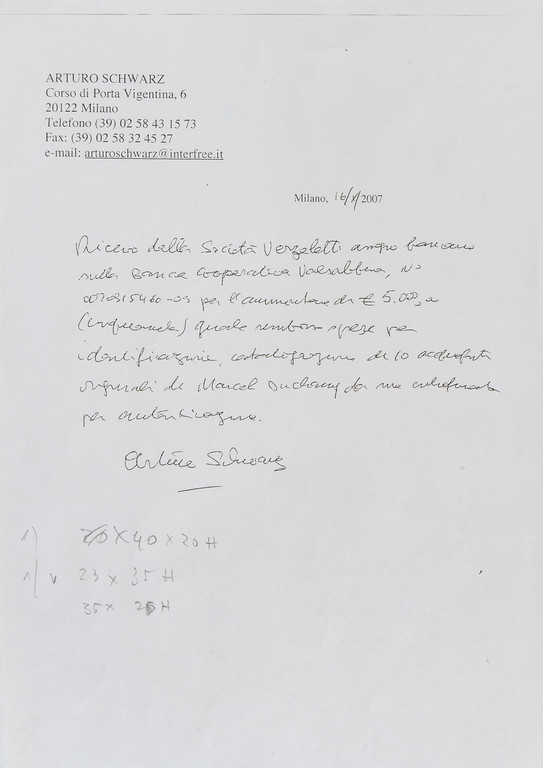 ARTURO SCHWARZ
Corso di Porta Vigentina, 6
20122 Milano
Telefono (39) 02 58 43 15 73
Fax: (39) 02 58 32 45 27
e-mail: arturoschwarz@interfree.it
Milano, 16/X/2007
Ricevo dalla Società Verzeletti assegno bancario
sulla Banca Cooperativa Valsabbina, No
per l'ammontare di € 5.000,=
quale rimborso spese per
identificazione, catalogazione di 10 acqueforti
originali di Marcel Duchamp da me
per autenticazione.
Arturo Schwarz
1) X 40 x 20 H
1) v 23 x 35 H
35 x 25 H